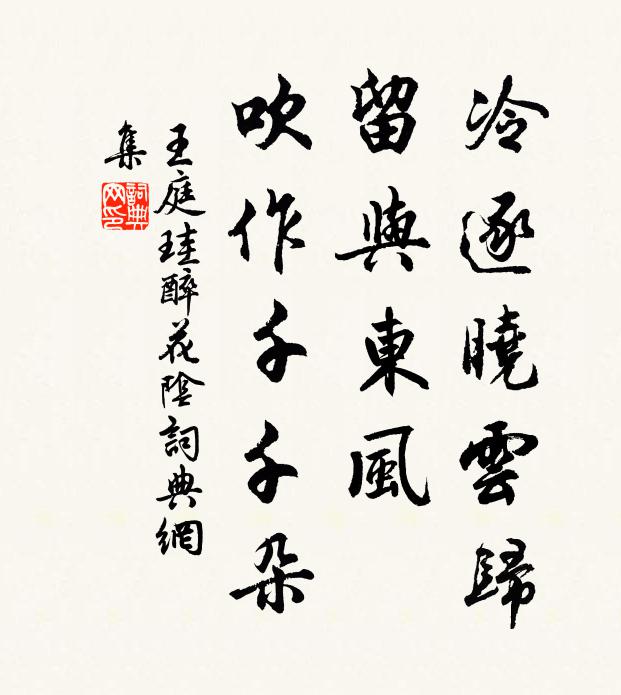 冷逐曉雲歸
留與東風
吹作千千朵
王庭珪醉花陰詞典網
集
詞典
网印